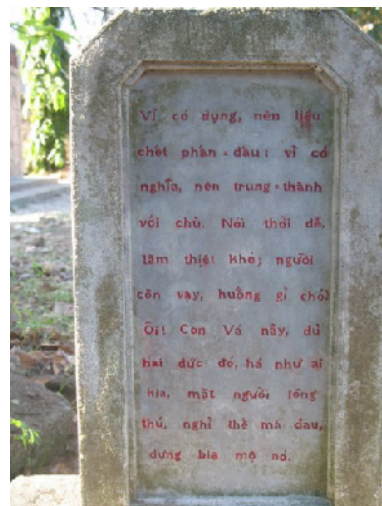 Vì có dụng, nên liều
chết phấn-đấu; vì có
nghĩa, nên trung-thành
với chủ. Nói thời dễ,
làm thiệt khó; người
còn vậy, huống gì chó?
Ôi! Con Vá nầy, đủ
hai đức đó, há như ai
kia, mặt người lòng
thú, nghỉ thế mà đau,
dựng bia mộ nó.